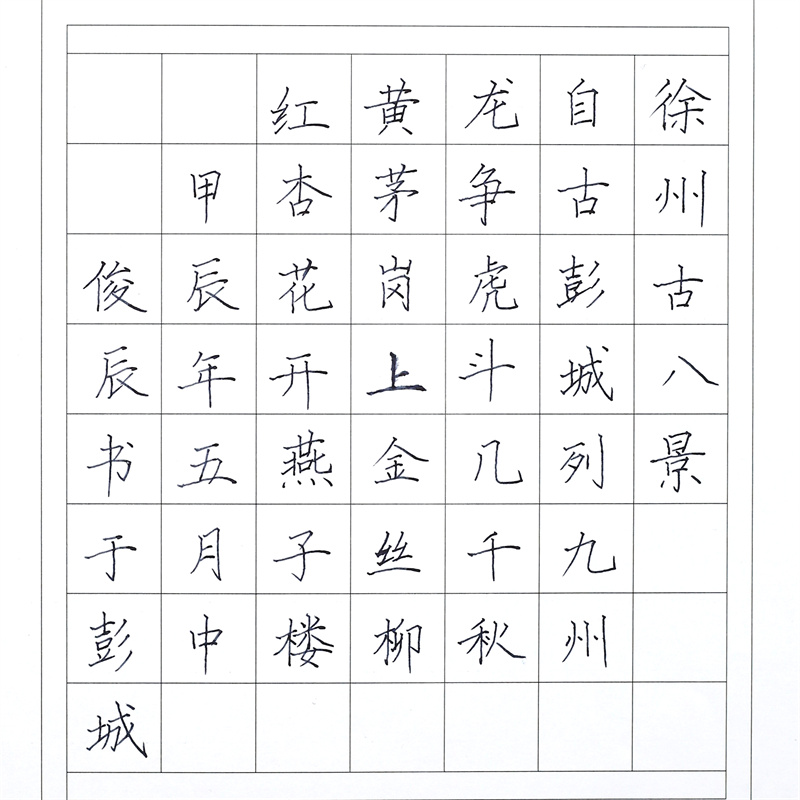 徐州古八景
自古彭城列九州
龙争虎斗几千秋
黄茅岗上金丝柳
红杏花开燕子楼
甲辰年五月中
俊辰书于彭城